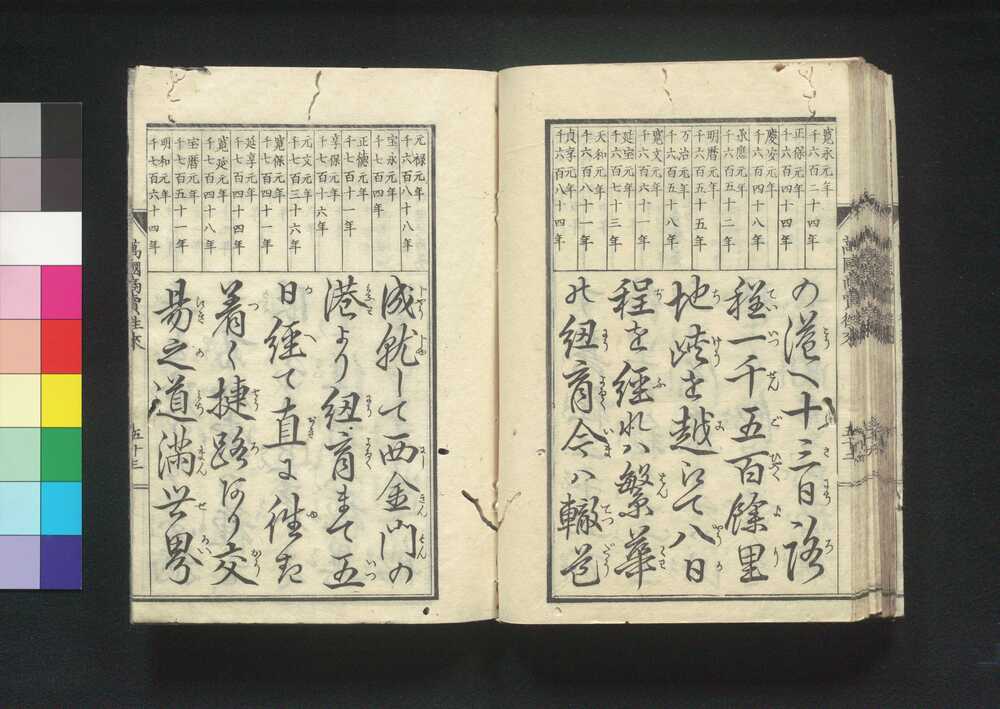 寛永元年
千六百二十四年
正保元年
千六百四十四年
慶安元年
千六百四十八年
承應元年
千六百五十二年
明暦元年
千六百五十五年
万治元年
千六百五十八年
寛文元年
千六百六十一年
延宝元年
千六百七十三年
天和元年
千六百八十一年
貞享元年
千六百八十四年
の港へ十三日路
程一千五百餘里
地峡を越にて八日
程を経れハ繁華
の紐育今ハ轍道
萬國商賣往来
五十三
元禄元年
千六百八十八年
宝永元年
千七百四年
正徳元年
千七百十一年
享保元年
千七百十六年
元文元年
千七百三十六年
寛保元年
千七百四十一年
延享元年
千七百四十四年
寛延元年
千七百四十八年
宝暦元年
千七百五十一年
明和元年
千七百六十四年
成就して西金門の
港より紐育まて五
日経て直に往き
着く捷路あり交
易之道満世界
萬國商賣往来
五十三